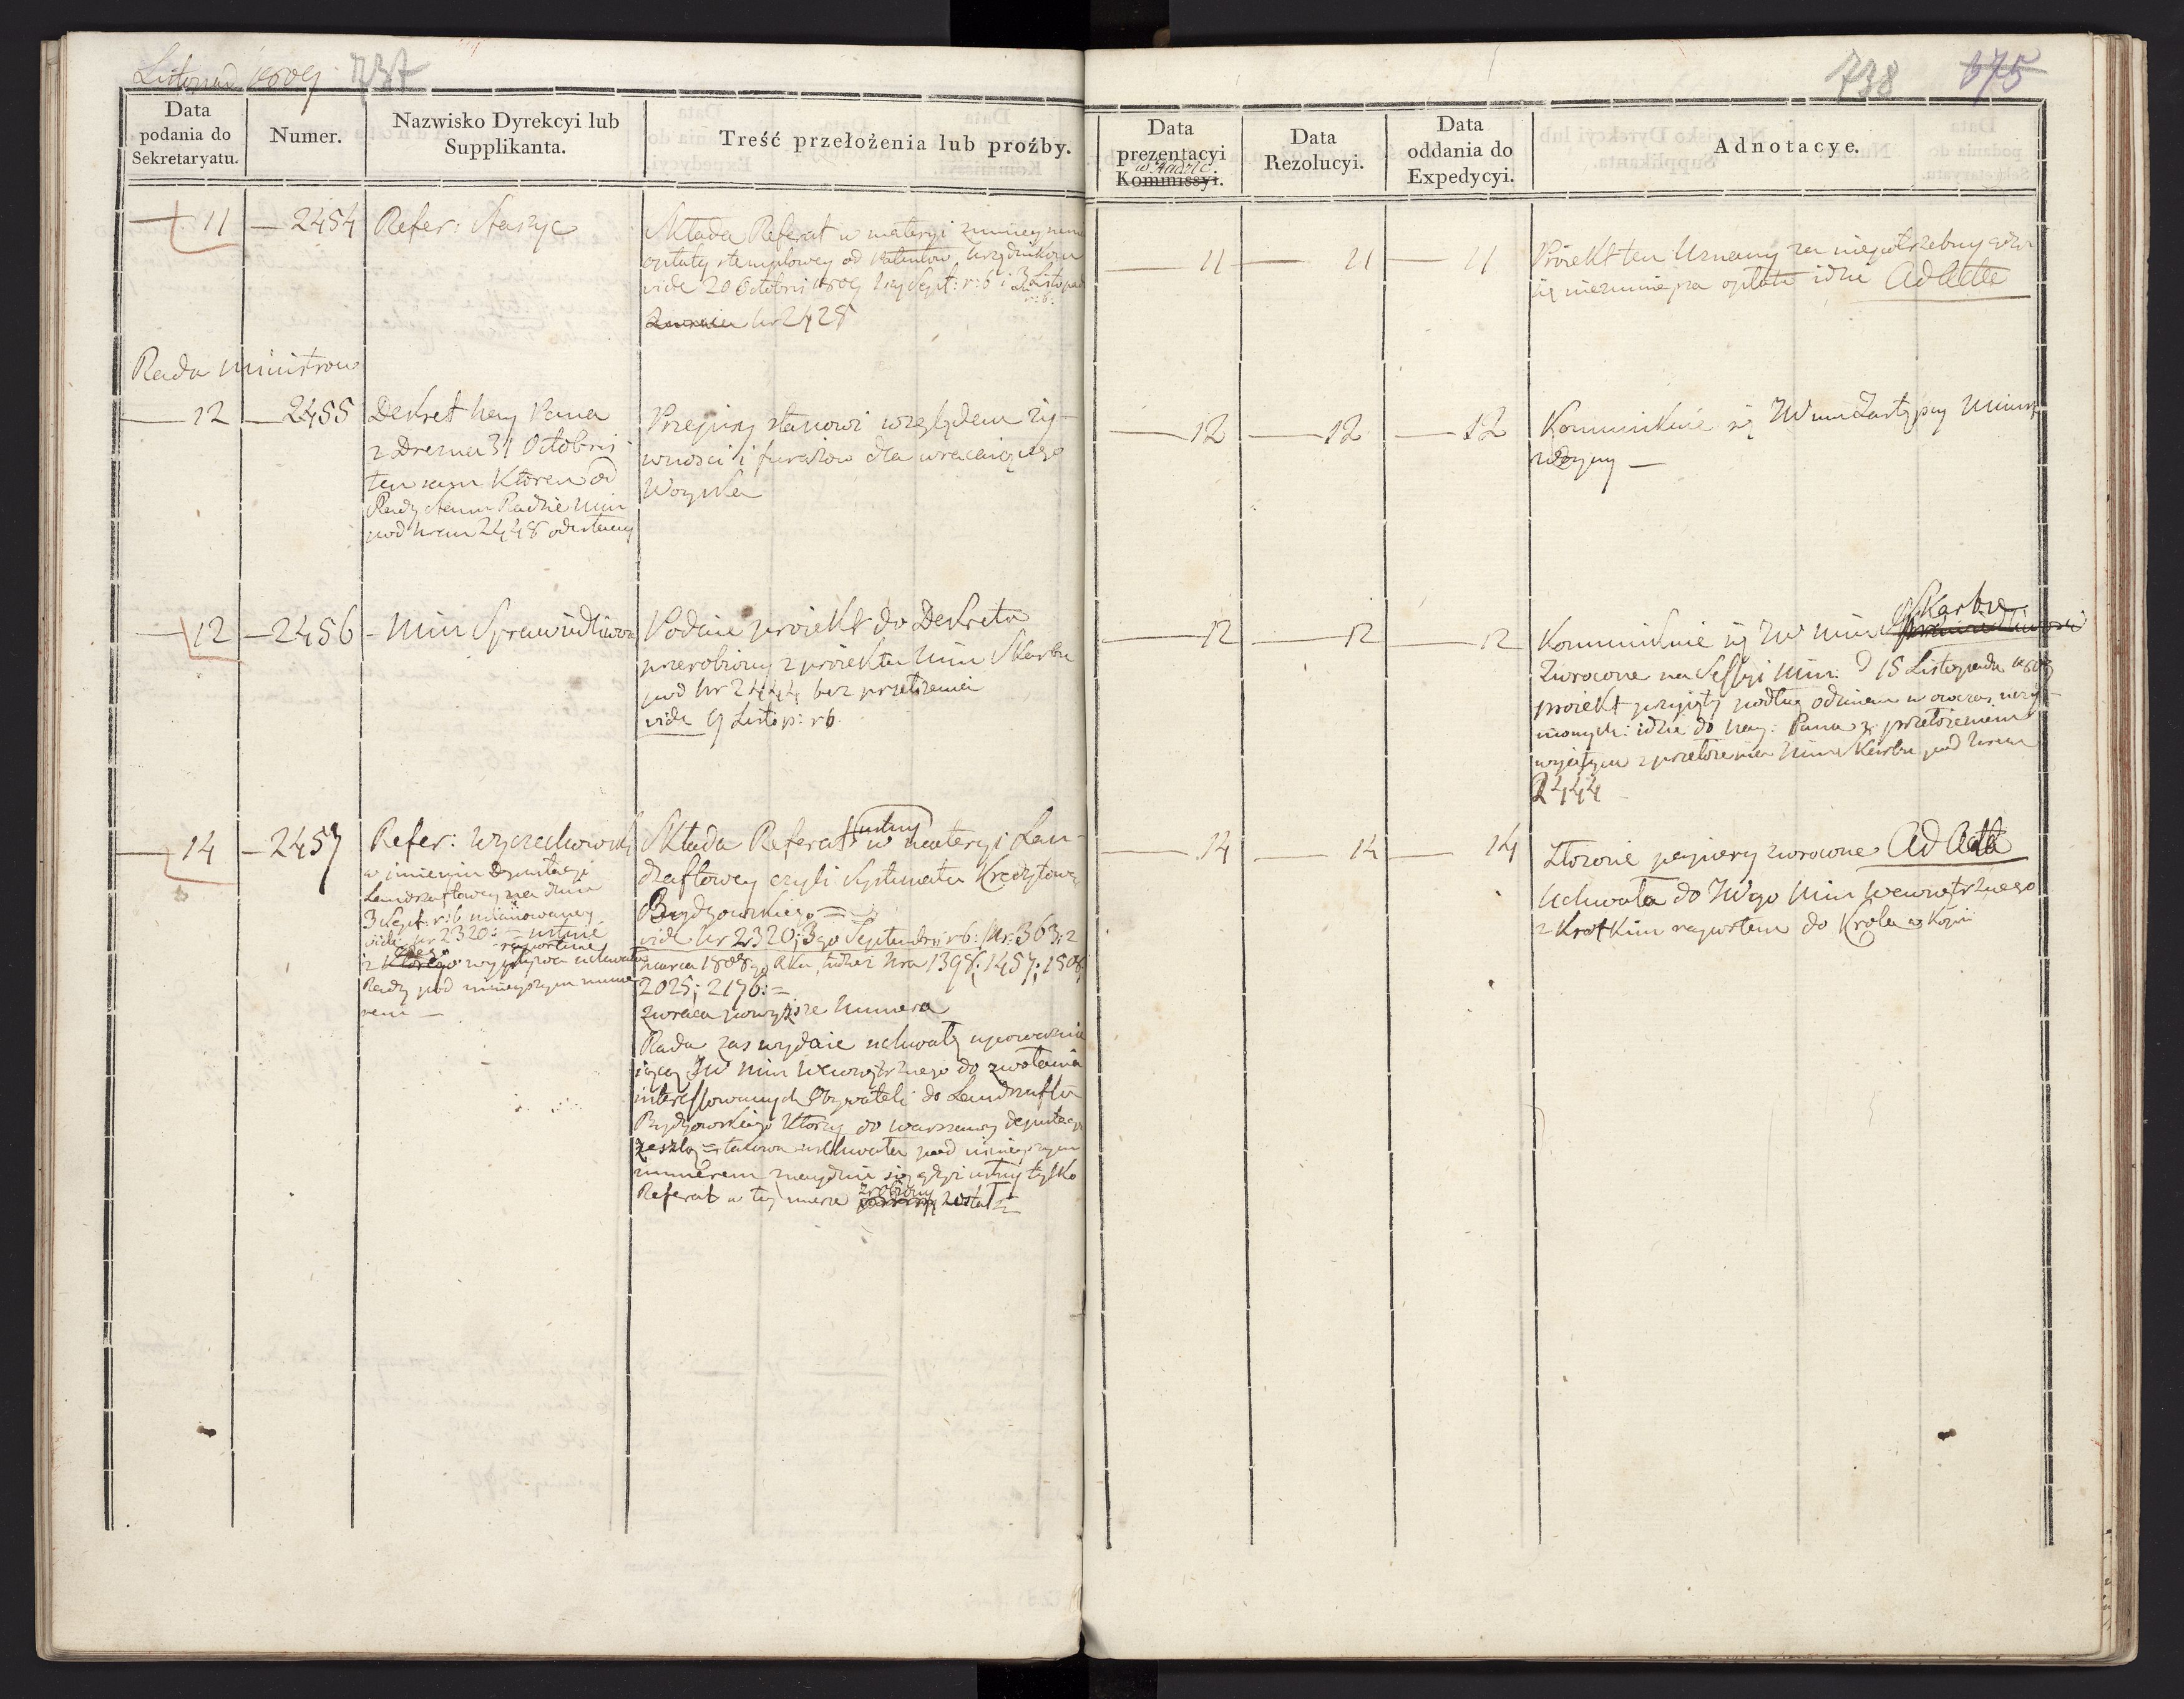 Listopad 1809
737
Data podania do Sekretaryatu.
Numer.
Nazwisko Dyrekcyi lub Supplikanta.
Treść przełożenia lub proźby.
11 — 2454
Refer: Staszyc
Składa Referat w materyi
opłaty stemplowey od Patentów Urzędnikom
vide 20 Octobris 1809 Sept: r: b i 3 Listopad
r: b:
Nr 2428
Rada Ministrow
12 — 2455
Dekret Nay Pana
z Drezna 31 Octobris
ten sam Któren od
Rady Stanu Radzie Min
pod Nrem 2448 odesłany
Przepisy stanowi względem ży-
wności i furażow dla wracaiącego
Woyska
12 — 2456 — Min Sprawiedliwości
Podaie proiekt do Dekretu
przerobiony z proiektu Min Skarbu
pod Nr 2444 bez przełożenia
vide 9 Listop: r b.
14 — 2457
Refer: Wyczechowski
w imieniu Deputacyi
Landszaftowey na dniu
3 Sept: r: b mianowaney
vide Nr 2320: = ustnie
raportuie
z ktorego wypływa uchwała
Rady pod ninieyszym nume
rem —
Składa Referat ustny w materyi Lan-
dszaftowey czyli Systematu Kredytowego
Bydgowskiego =
vide Nr 2320; 3go Septembris r b: Nr: 363: 2
marca 1808go Roku, tudzież Nra 1398; 1457; 1508;
2025; 2176: =
zwraca powyższe Numera
Rada zas wydaie uchwałę upoważnia
iącą JW Min Wewnętrznego do zwołania
interessowanych Obywateli do Landszaftu
Bydgowskiego Którzy do Warszawy deputacyą
zeszlą = takowa uchwała pod ninieyszym
numerem znayduie się gdyż ustny tylko
Referat w tey mierze zrobiony został =
738
675
Data prezentacyi w Radzie Kommissyi.
Data Rezolucyi.
Data oddania do Expedycyi.
Adnotacye.
11 — 11 — 11
Proiekt ten Uznany za niepotrzebny gdy
się niezmnieysza opłata idzie Ad Acta
12 — 12 — 12
Kommunikuie się JWmu Zastępcy Ministra
Woyny —
12 — 12 — 12
Kommunikuie się JW Min Skarbu Sprawiedliwości
Zwrocone na Sessyi Min: d 15 Listopada 1809
proiekt przyięty podług odmian w owczas uczy-
nionych: idzie do Nay: Pana z przełożeniem
wyiętym z przełożenia Min Skarbu pod Nrem
2444
14 — 14 — 14
Złożone papiery zwrocone Ad Acta
Uchwała do JWgo Min Wewnętrznego
z Krotkim raportem do Krola w Kopii